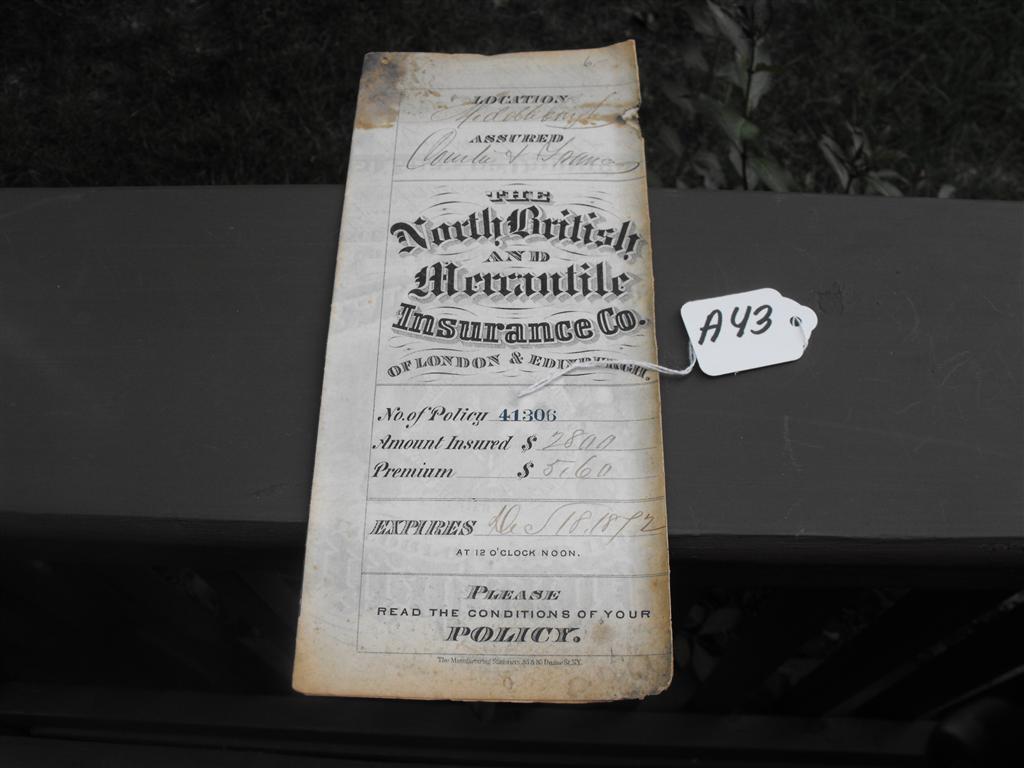 6
LOCATION
ASSURED
THE
North British
AND
Mercantile
Insurance Co.
OF LONDON & EDINBURGH.
A43
No. of Policy 41306
Amount Insured $ 2800
Premium $ 5.60
EXPIRES Dec 18. 1872
AT 12 O'CLOCK NOON.
PLEASE
READ THE CONDITIONS OF YOUR
POLICY.
The Manufacturing Stationers